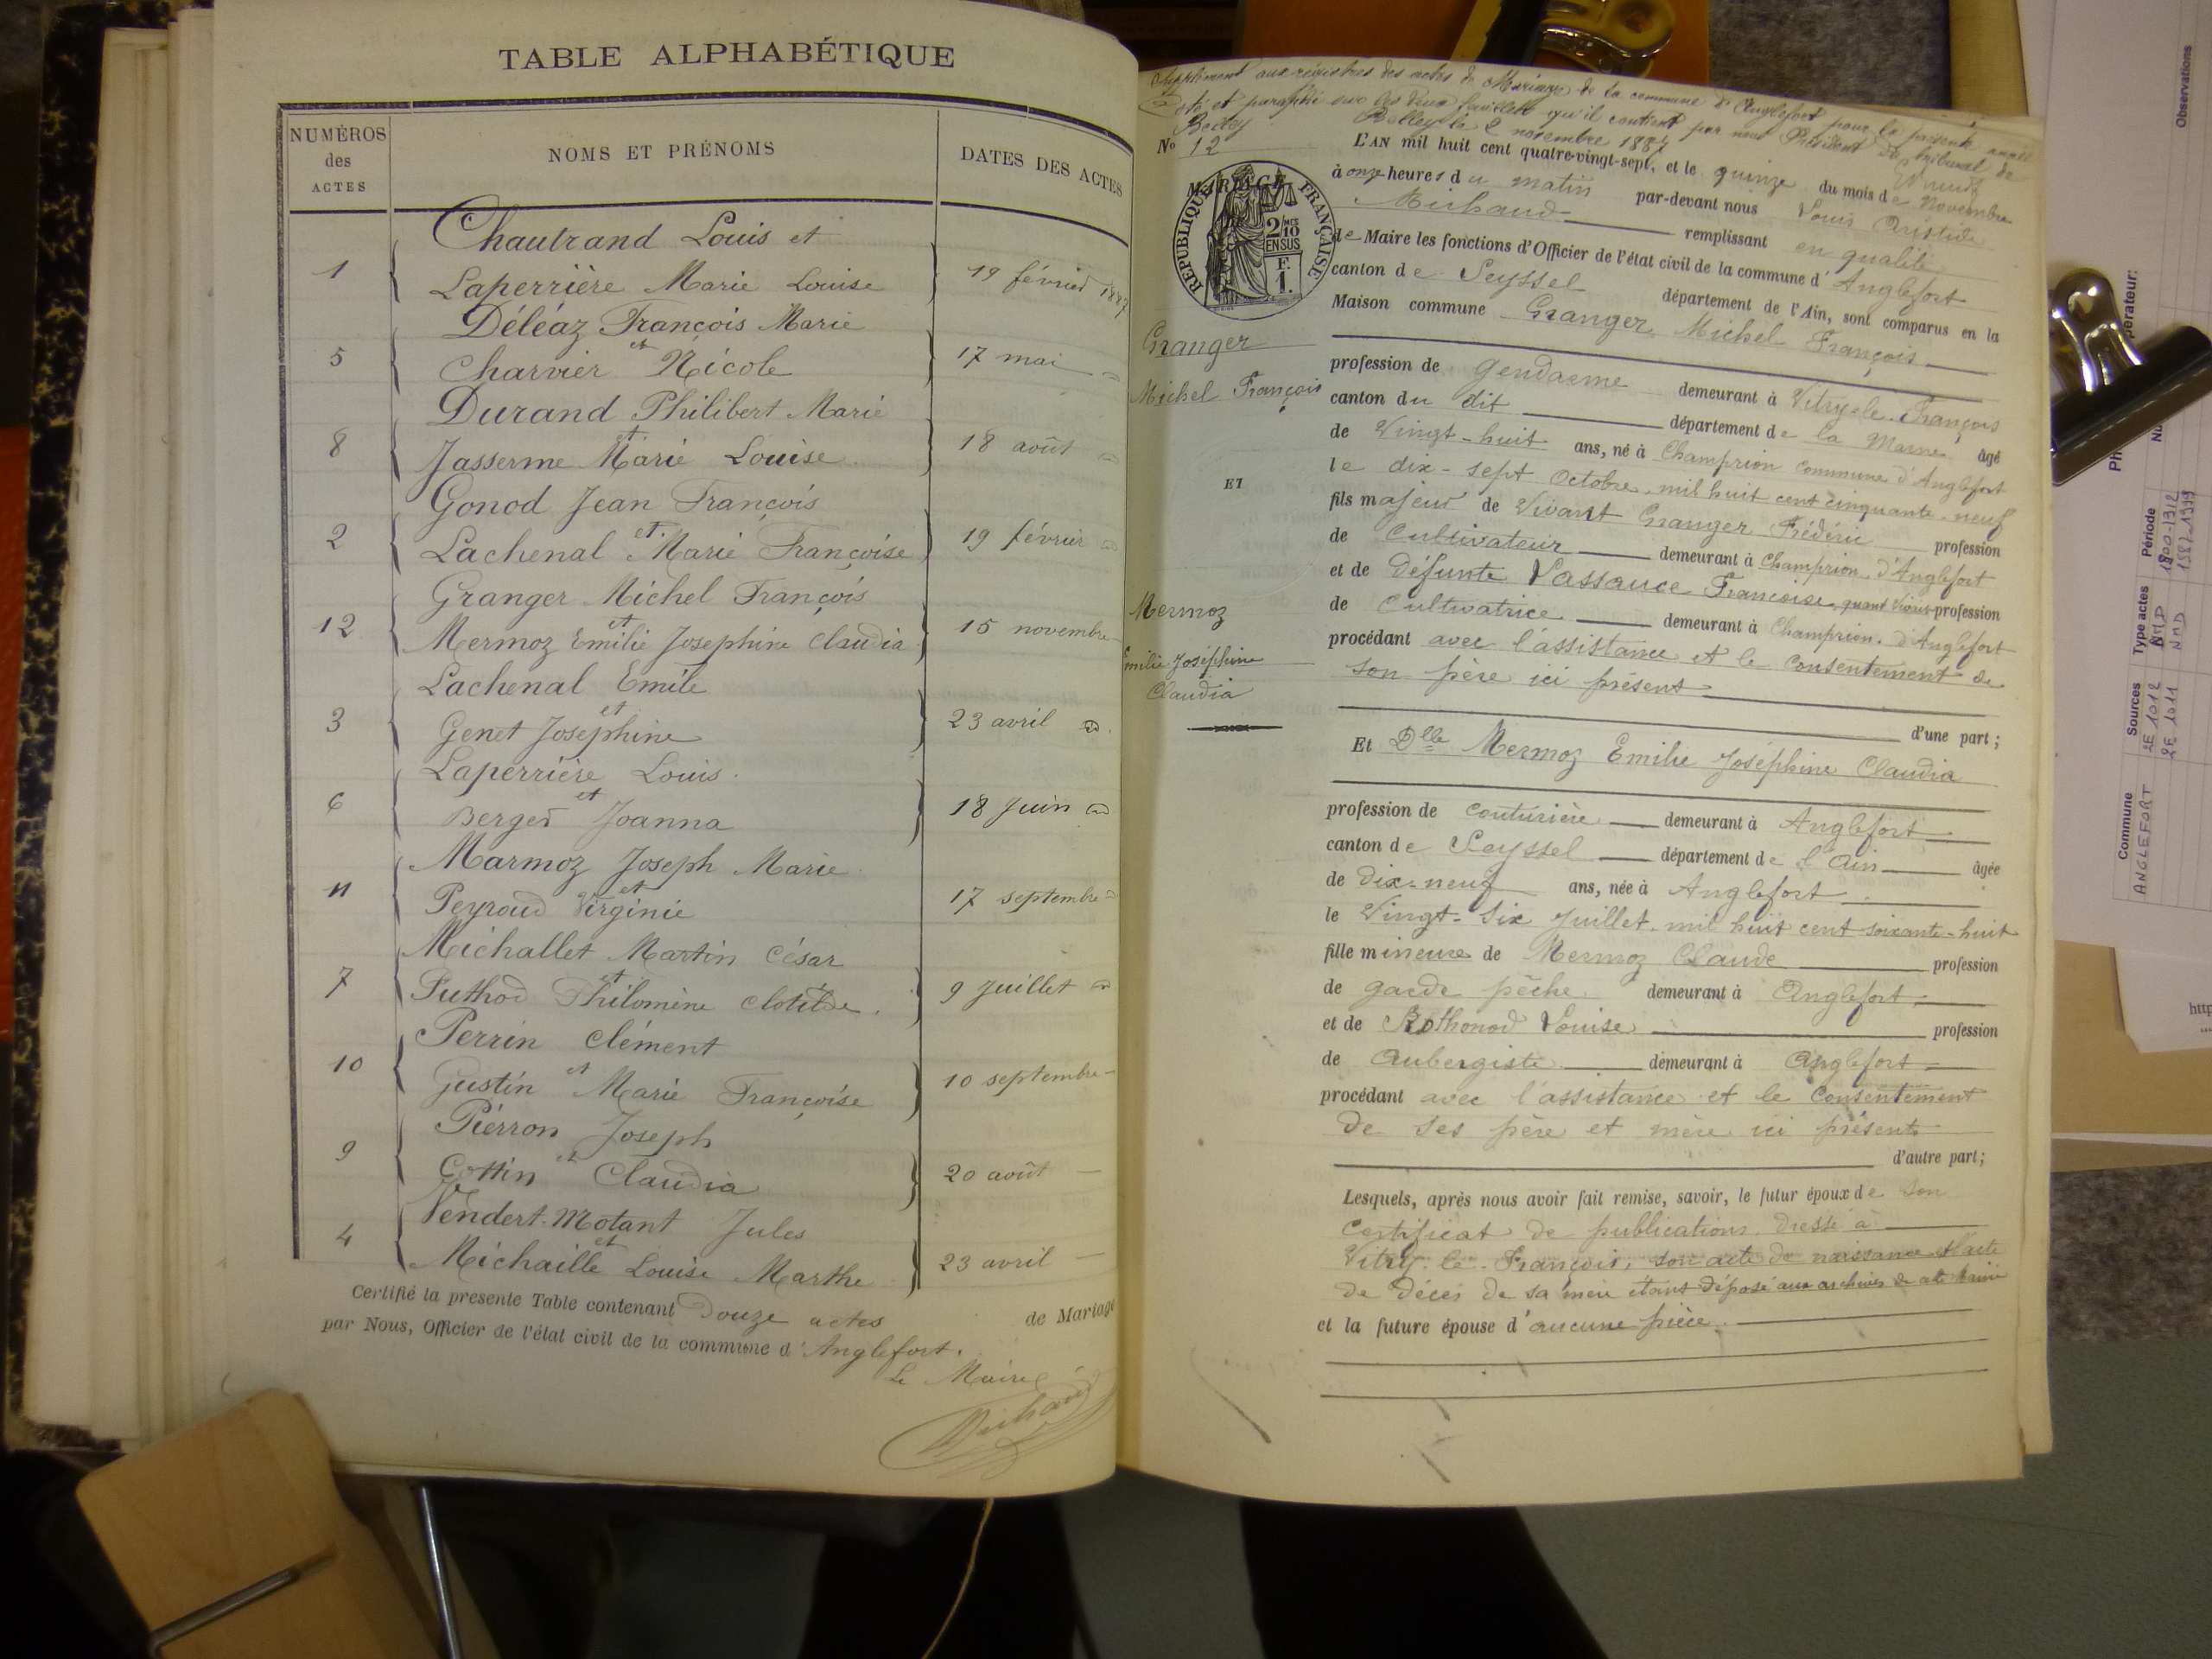 TABLE ALPHABÉTIQUE
NUMÉROS
des
ACTES
NOMS ET PRÉNOMS
DATES DES ACTES
Chautrand Louis et
1
Laperrière Marie Louise
19 février 1887
Déléaz François Marie
et
5
Charvier Nicole
17 mai
Durand Philibert Marie
et
8
Jasserme Marie Louise
18 août
Gonod Jean François
et
2
Lachenal Marie Françoise
19 février
Granger Michel François
et
12
Mermoz Emilie Josephine Claudia
15 novembre
Lachenal Emile
et
3
Genet Joséphine
23 avril
Laperrière Louis
et
6
Berger Joanna
18 Juin
Marmoz Joseph Marie
et
11
Peyroud Virginie
17 septembre
Michallet Martin César
et
7
Puthod Philomène Clotilde
9 Juillet
Perrin Clément
et
10
Gustin Marie Françoise
10 septembre
Piérron Joseph
et
9
Cottin Claudia
20 août
Vendert-Motant Jules
et
4
Michaille Louise Marthe
23 avril
Certifié la presente Table contenant Douze actes de Mariage
par Nous, Officier de l'état civil de la commune d'Anglefort.
Le Maire
Michaud
Supplément aux régistres des actes de Mariage de la commune d'Anglefort pour la présente année
Coté et paraphé sur les deux feuillets qu'il contient par nous Président du tribunal de
Belley Belley le 2 novembre 1887
No 12
MARIAGE
RÉPUBLIQUE FRANÇAISE
2/10
EN SUS
F.
1.
L'AN mil huit cent quatre-vingt-sept, et le quinze du mois de Novembre
à onze heures du matin par-devant nous Louis Aristide
Michaud remplissant en qualité
de Maire les fonctions d'Officier de l'état civil de la commune d'Anglefort
canton de Seyssel département de l'Ain, sont comparus en la
Maison commune Granger Michel François
Granger
Michel François
profession de Gendarme demeurant à Vitry le François
canton du dit département de la Marne âgé
de Vingt-huit ans, né à Champrion commune d'Anglefort
le dix-sept Octobre mil huit cent cinquante-neuf
ET
fils majeur de Vivant Granger Frédéric profession
de Cultivateur demeurant à Champrion d'Anglefort
et de défunte Vassauce Françoise quand vivait profession
de Cultivatrice demeurant à Champrion d'Anglefort
Mermoz
Emilie Joséphine
Claudia
procédant avec l'assistance et le consentement de
son père ici présent
d'une part;
Et Dlle Mermoz Emilie Joséphine Claudia
profession de couturière demeurant à Anglefort
canton de Seyssel département de l'Ain âgée
de Dix-neuf ans, née à Anglefort
le Vingt-six Juillet mil huit cent soixante-huit
fille mineure de Mermoz Claude profession
de garde pêche demeurant à Anglefort
et de Rothonod Louise profession
de Aubergiste demeurant à Anglefort
procédant avec l'assistance et le consentement
de ses père et mère ici présents
d'autre part;
Lesquels, après nous avoir fait remise, savoir, le futur époux de son
certificat de publications dressé à
Vitry-le-François, son acte de naissance et l'acte
de décès de sa mère étant déposé aux archives de Mairie
et la future épouse d'aucune pièce.
Observations
Période
1800-1312
Type actes
NMD
NMD
Sources
2E 1012
2E 1011
Commune
ANGLEFORT
http